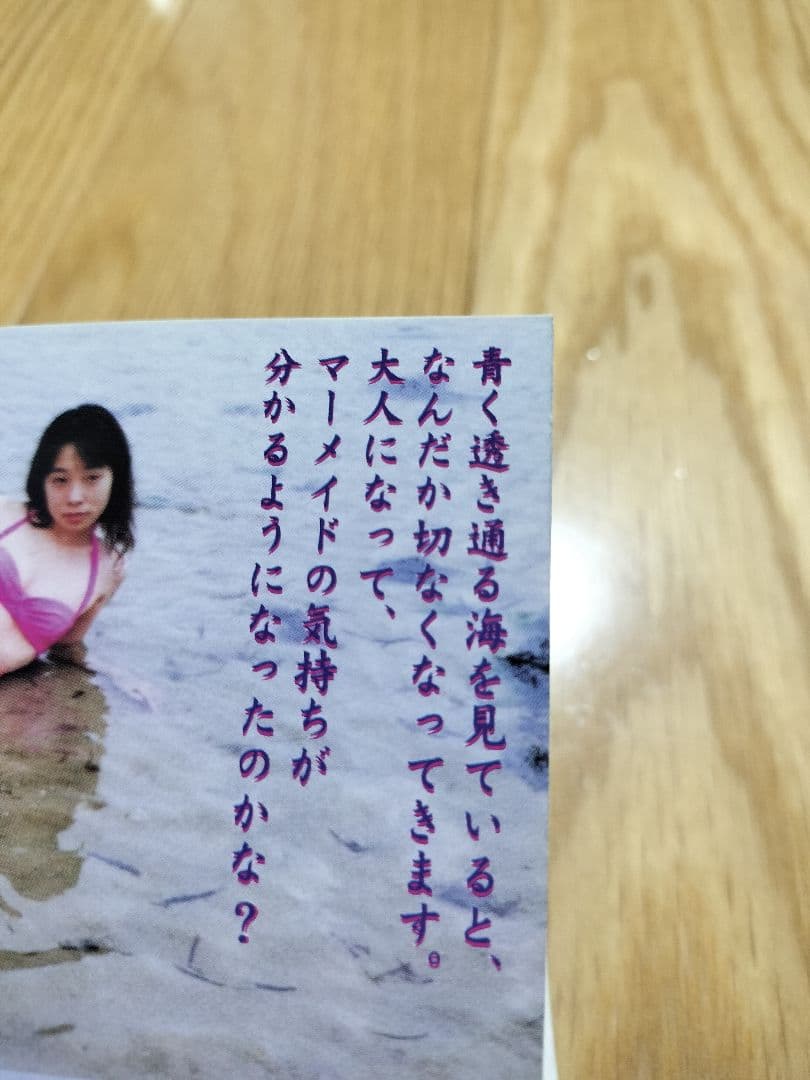 青く透き通る海を見ていると、
なんだか切なくなってきます。
大人になって、
マーメイドの気持ちが
分かるようになったのかな?